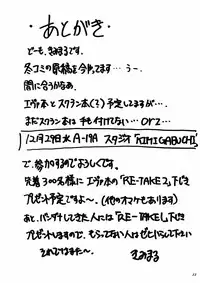 ・あとがき・
どーも、きみまるです。
冬コミの原稿を今やってます…うー。
間に合うかなあ…
エヴァ本とスクラン本(?)予定してますが…
まだスクラン本は手も付けてない…orz…
12月29日(木)A-19A スタジオ「KIMIGABUCHI」
で、参加するのでよろしくです。
先着300名様にエヴァ本の「RE-TAKE2」下じき
プレゼント予定ですよ〜。(他のオマケもあります)
あと、バージョンしてきた人には「RE-TAKE1」下じき
プレゼントしますので、もらってない人はぜひ
きみまる